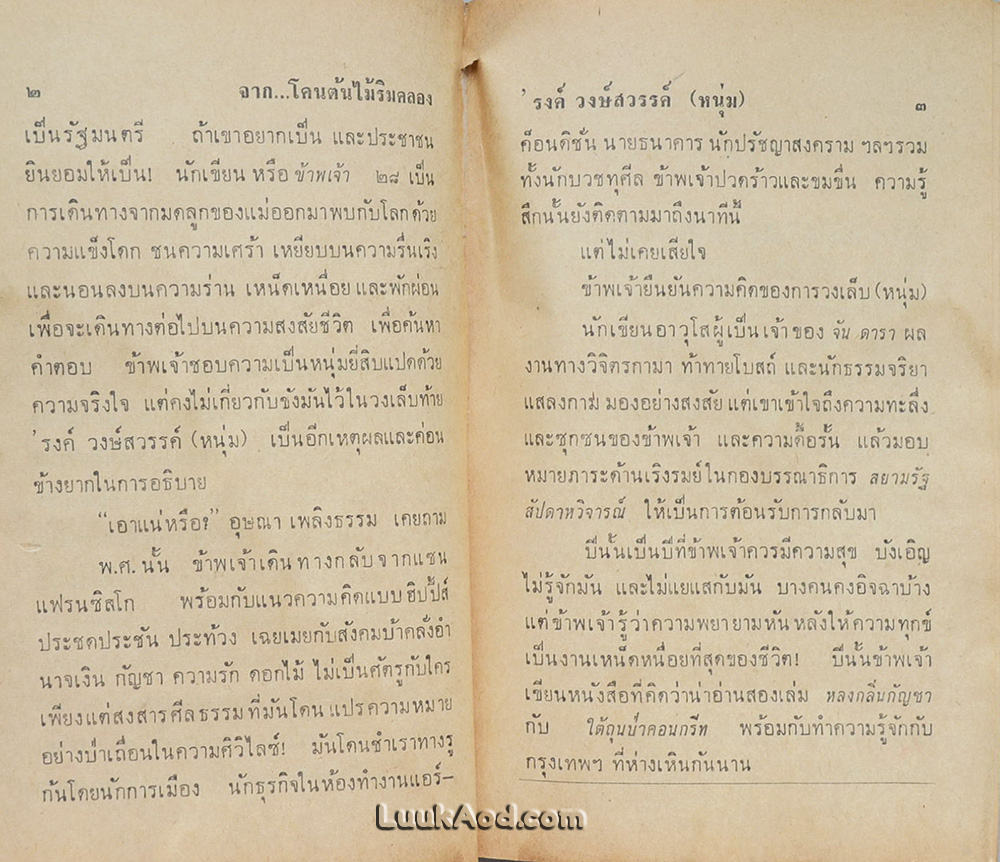 ๒ จาก...โคนต้นไม้ริมคลอง
เป็นรัฐมนตรี ถ้าเขาอยากเป็น และประชาชน
ยินยอมให้เป็น! นักเขียน หรือ ข้าพเจ้า ๒๘ เป็น
การเดินทางจากมดลูกของแม่ออกมาพบกับโลกด้วย
ความแข็งโดก ชนความเศร้า เหยียบบนความรื่นเริง
และนอนลงบนความร่าน เหน็ดเหนื่อย และพักผ่อน
เพื่อจะเดินทางต่อไปบนความสงสัยชีวิต เพื่อค้นหา
คำตอบ ข้าพเจ้าชอบความเป็นหนุ่มยี่สิบแปดด้วย
ความจริงใจ แต่คงไม่เกี่ยวกับขังมันไว้ในวงเล็บท้าย
'รงค์ วงษ์สวรรค์ (หนุ่ม) เป็นอีกเหตุผลและค่อน
ข้างยากในการอธิบาย
"เอาแน่หรือ?" อุษณา เพลิงธรรม เคยถาม
พ.ศ. นั้น ข้าพเจ้าเดินทางกลับจากแซน
แฟรนซิสโก พร้อมกับแนวความคิดแบบฮิปปี้ส์
ประชดประชัน ประท้วง เฉยเมยกับสังคมบ้าคลั่งอำ
นาจเงิน กัญชา ความรัก ดอกไม้ ไม่เป็นศัตรูกับใคร
เพียงแต่สงสารศีลธรรมที่มันโดนแปรความหมาย
อย่างป่าเถื่อนในความศิวิไลซ์! มันโดนชำเราทางรู
ก้นโดยนักการเมือง นักธุรกิจในห้องทำงานแอร์–
'รงค์ วงษ์สวรรค์ (หนุ่ม) ๓
ค็อนดิชั่น นายธนาคาร นักปรัชญาสงคราม ฯลฯรวม
ทั้งนักบวชทุศีล ข้าพเจ้าปวดร้าวและขมขื่น ความรู้
สึกนั้นยังติดตามมาถึงนาทีนี้
แต่ไม่เคยเสียใจ
ข้าพเจ้ายืนยันความคิดของการวงเล็บ (หนุ่ม)
นักเขียนอาวุโสผู้เป็นเจ้าของ จัน ดารา ผล
งานทางวิจิตรกามา ท้าทายโบสถ์ และนักธรรมจริยา
แสลงกาม มองอย่างสงสัย แต่เขาเข้าใจถึงความทะลึ่ง
และซุกซนของข้าพเจ้า และความดื้อรั้น แล้วมอบ
หมายภาระด้านเริงรมย์ในกองบรรณาธิการ สยามรัฐ
สัปดาหวิจารณ์ ให้เป็นการต้อนรับการกลับมา
ปีนั้นเป็นปีที่ข้าพเจ้าควรมีความสุข บังเอิญ
ไม่รู้จักมัน และไม่แยแสกับมัน บางคนคงอิจฉาบ้าง
แต่ข้าพเจ้ารู้ว่าความพยายามหันหลังให้ความทุกข์
เป็นงานเหน็ดหนื่อยที่สุดของชีวิต! ปีนั้นข้าพเจ้า
เขียนหนังสือที่คิดว่าน่าอ่านสองเล่ม หลงกลิ่นกัญชา
กับ ใต้ถุนป่าคอนกรีท พร้อมกับทำความรู้จักกับ
กรุงเทพฯ ที่ห่างเหินกันนาน
LuukAod.com